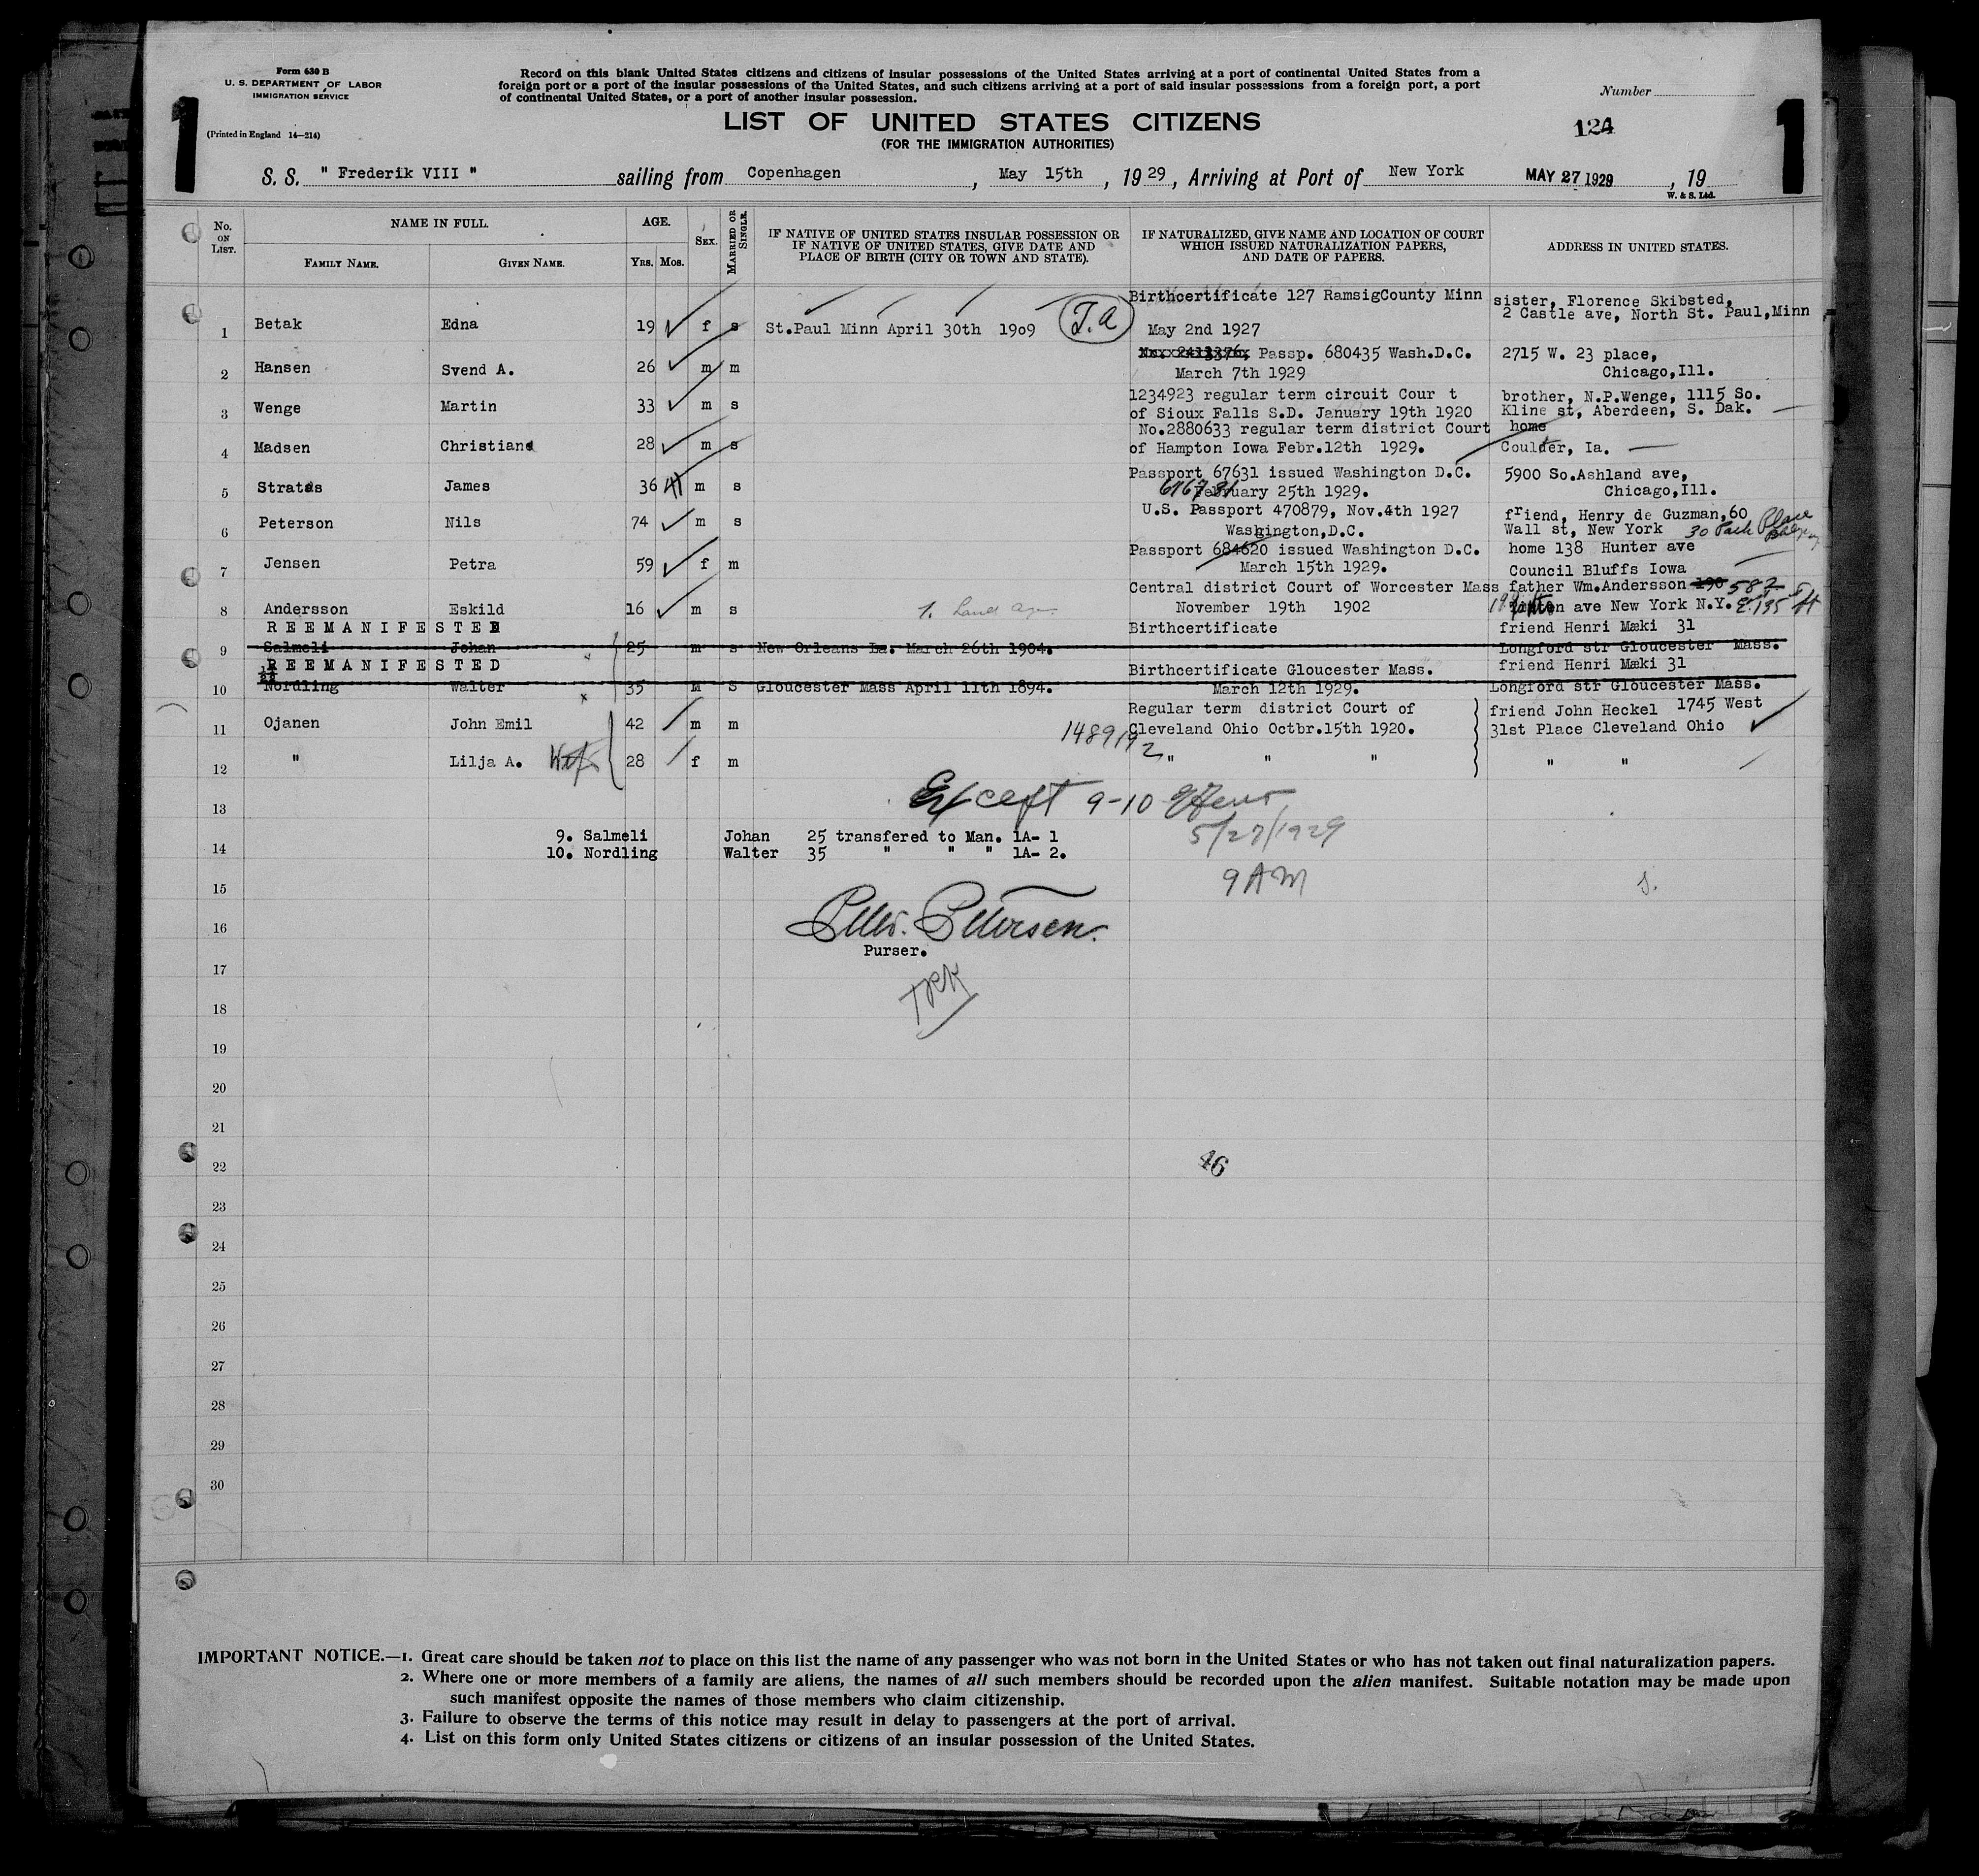 Form 630 B
U. S. DEPARTMENT OF LABOR
IMMIGRATION SERVICE
(Printed in England 14—214)
1
Record on this blank United States citizens and citizens of insular possessions of the United States arriving at a port of continental United States from a
foreign port or a port of the insular possessions of the United States, and such citizens arriving at a port of said insular possessions from a foreign port, a port
of continental United States, or a port of another insular possession.
Number
124
1
LIST OF UNITED STATES CITIZENS
(FOR THE IMMIGRATION AUTHORITIES)
S. S. " Frederik VIII " sailing from Copenhagen, May 15th, 1929, Arriving at Port of New York MAY 27 1929, 19
W. & S. Ltd.
No. ON LIST. NAME IN FULL. AGE. SEX. MARRIED OR SINGLE. IF NATIVE OF UNITED STATES INSULAR POSSESSION OR IF NATIVE OF UNITED STATES, GIVE DATE AND PLACE OF BIRTH (CITY OR TOWN AND STATE). IF NATURALIZED, GIVE NAME AND LOCATION OF COURT WHICH ISSUED NATURALIZATION PAPERS, AND DATE OF PAPERS. ADDRESS IN UNITED STATES.
FAMILY NAME. GIVEN NAME. YRS. MOS.
Birthcertificate 127 RamsigCounty Minn sister, Florence Skibsted,
2 Castle ave, North St. Paul,Minn
1 Betak Edna 19 f s St.Paul Minn April 30th 1909 T.A May 2nd 1927
Passp. 680435 Wash.D.C. 2715 W. 23 place,
2 Hansen Svend A. 26 m m March 7th 1929 Chicago,Ill.
1234923 regular term circuit Cour t brother, N.P.Wenge, 1115 So.
3 Wenge Martin 33 m s of Sioux Falls S.D. January 19th 1920 Kline st, Aberdeen, S. Dak.
No.2880633 regular term district Court home
4 Madsen Christian 28 m s of Hampton Iowa Febr.12th 1929. Coulder, Ia.
Passport 67631 issued Washington D.C. 5900 So.Ashland ave,
5 Stratas James 36 41 m s 676731 February 25th 1929. Chicago,Ill.
U.S. Passport 470879, Nov.4th 1927 friend, Henry de Guzman,60
6 Peterson Nils 74 m s Washington,D.C. Wall st, New York 30 Park Place
Passport 684620 issued Washington D.C. home 138 Hunter ave
7 Jensen Petra 59 f m March 15th 1929. Council Bluffs Iowa
Central district Court of Worcester Mass father Wm.Andersson 190 582
8 Andersson Eskild 16 m s November 19th 1902 ave New York N.Y. E.135 St
REEMANIFESTED Birthcertificate friend Henri Mæki 31
9 Salmeli Johan 25 m s New Orleans La. March 26th 1904. Longford str Gloucester Mass.
REEMANIFESTED Birthcertificate Gloucester Mass. friend Henri Mæki 31
10 Nordling Walter 35 M S Gloucester Mass April 11th 1894. March 12th 1929. Longford str Gloucester Mass.
Regular term district Court of friend John Heckel 1745 West
11 Ojanen John Emil 42 m m Cleveland Ohio Octbr.15th 1920. 31st Place Cleveland Ohio
1489192
12 " Lilja A. Wife 28 f m " " " " "
13 Except 9-10
5/27/1929
9. Salmeli Johan 25 transfered to Man. 1A- 1
14
10. Nordling Walter 35 " " " 1A- 2.
9 AM
15
16 Petersen.
Purser.
17
18
19
20
21
22 46
23
24
25
26
27
28
29
30
IMPORTANT NOTICE.—1. Great care should be taken not to place on this list the name of any passenger who was not born in the United States or who has not taken out final naturalization papers.
2. Where one or more members of a family are aliens, the names of all such members should be recorded upon the alien manifest. Suitable notation may be made upon
such manifest opposite the names of those members who claim citizenship.
3. Failure to observe the terms of this notice may result in delay to passengers at the port of arrival.
4. List on this form only United States citizens or citizens of an insular possession of the United States.